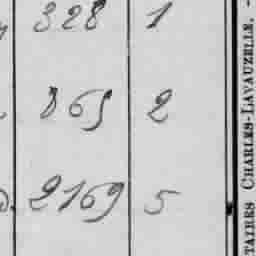 328 1
869 2
2169 5
TAIRES CHARLES-LAVAUZELLE. -